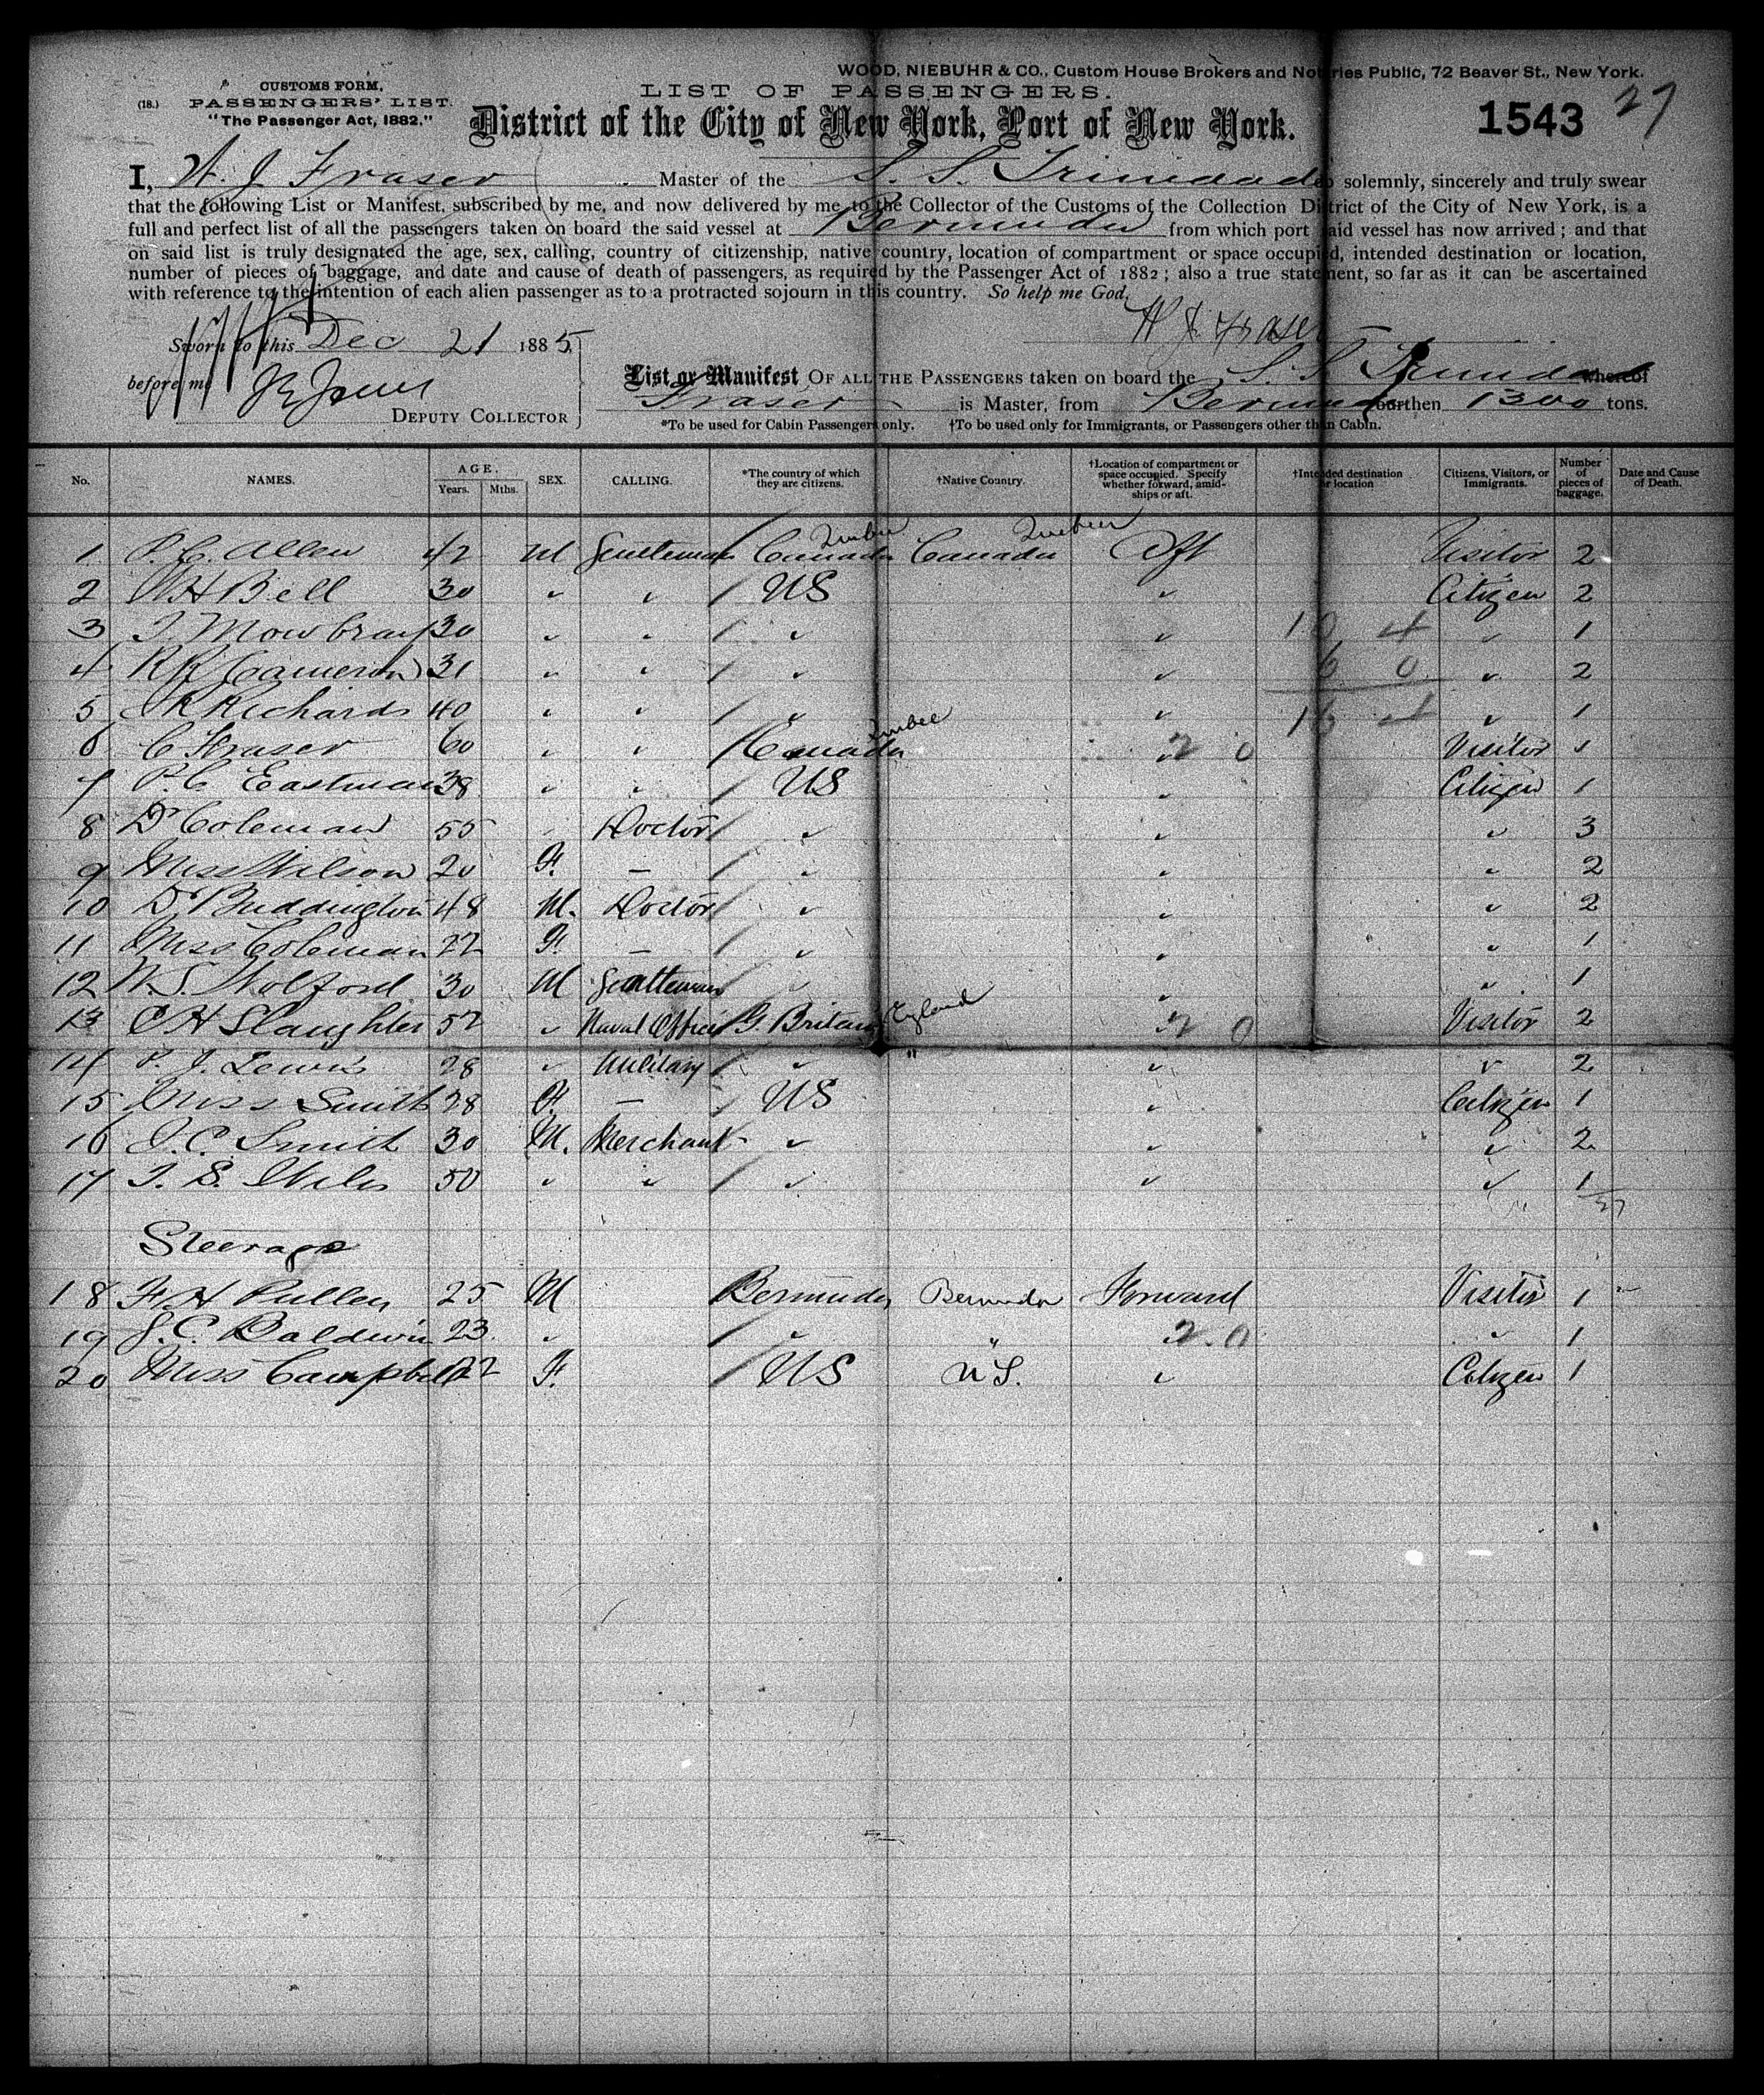 WOOD, NIEBUHR & CO., Custom House Brokers and Notaries Public, 72 Beaver St., New York.
CUSTOMS FORM.
LIST OF PASSENGERS.
(18.) PASSENGERS' LIST.
"The Passenger Act, 1882."
District of the City of New York, Port of New York.
1543 27
I, W. J. Fraser Master of the S. S. Trinidad do solemnly, sincerely and truly swear
that the following List or Manifest, subscribed by me, and now delivered by me to the Collector of the Customs of the Collection District of the City of New York, is a
full and perfect list of all the passengers taken on board the said vessel at Bermuda from which port said vessel has now arrived; and that
on said list is truly designated the age, sex, calling, country of citizenship, native country, location of compartment or space occupied, intended destination or location,
number of pieces of baggage, and date and cause of death of passengers, as required by the Passenger Act of 1882; also a true statement, so far as it can be ascertained
with reference to the intention of each alien passenger as to a protracted sojourn in this country. So help me God.
W J Fraser
Sworn to this Dec 21 1885
before me
DEPUTY COLLECTOR
List or Manifest OF ALL THE PASSENGERS taken on board the S. S. Trinidad whereof
Fraser is Master, from Bermuda burthen 1300 tons.
*To be used for Cabin Passengers only. †To be used only for Immigrants, or Passengers other than Cabin.
No. NAMES. AGE. Years. Mths. SEX. CALLING. *The country of which they are citizens. †Native Country. †Location of compartment or space occupied. Specify whether forward, amidships or aft. †Intended destination or location Citizens, Visitors, or Immigrants. Number of pieces of baggage. Date and Cause of Death.
1 P. C. Allen 42 M Gentleman Canada Quebec Canada Quebec Aft Visitor 2
2 W H Bell 30 " " US " Citizen 2
3 T. Mowbray 30 " " " " 10 4 " 1
4 R R Cameron 31 " " " " 6 0 " 2
5 R Richards 40 " " " " 16 4 " 1
6 C Fraser 60 " " Canada Quebec " 2 0 Visitor 1
7 P. C. Eastman 38 " " US " Citizen 1
8 Dr Coleman 55 " Doctor " " " 3
9 Miss Wilson 20 F. — " " " 2
10 Dr Buddington 48 M. Doctor " " " 2
11 Miss Coleman 22 F. — " " " 1
12 W. S. Wolford 30 M Gentleman " " " 1
13 C H Slaughter 52 " Naval Officer G. Britain England " 2 0 Visitor 2
14 P. J. Lewis 28 " Military " " " " 2
15 Miss Smith 28 F. — US " Citizen 1
16 J. C. Smith 30 M. Merchant " " " 2
17 T. S. 50 " " " " " 1
27
Steerage
18 F H Pullen 25 M Bermuda Bermuda Forward Visitor 1
19 J. C. Baldwin 23 " " " 2 0 " 1
20 Miss Campbell 22 F. US U S. " Citizen 1